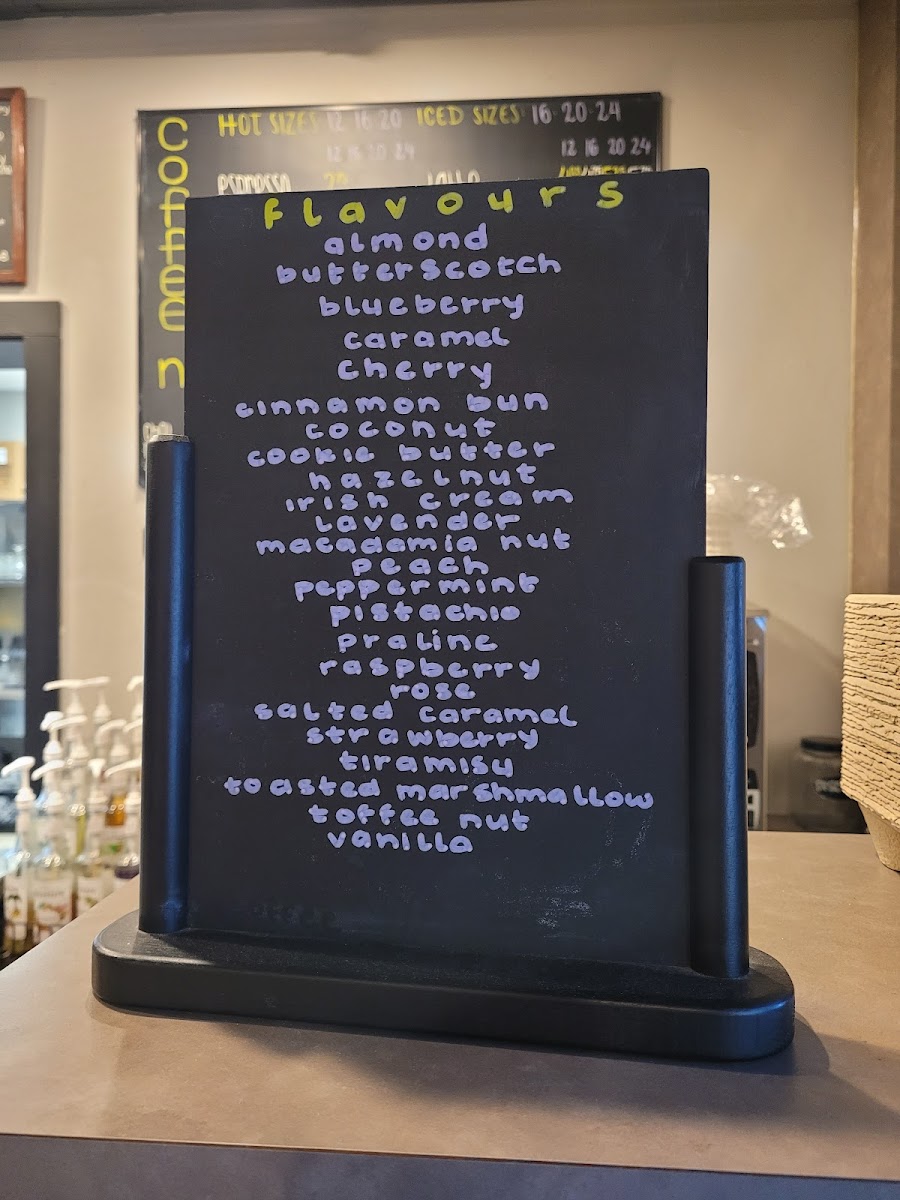 HOT SIZES 12 16 20 ICED SIZES 16 20 24
12 16 20 24 12 16 20 24
flavours
almond
butterscotch
blueberry
caramel
cherry
cinnamon bun
coconut
cookie butter
hazelnut
irish cream
lavender
macadamia nut
peach
peppermint
pistachio
praline
raspberry
rose
salted caramel
strawberry
tiramisu
toasted marshmallow
toffee nut
vanilla